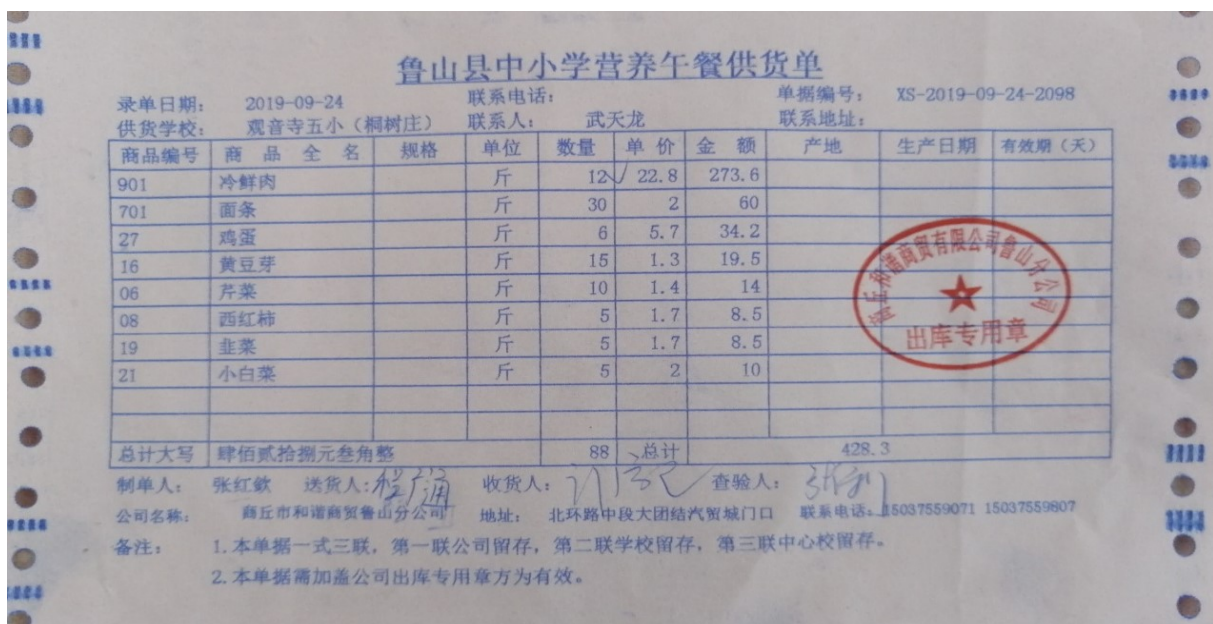 鲁山县中小学营养午餐供货单
录单日期: 2019-09-24 联系电话: 单据编号: XS-2019-09-24-2098
供货学校: 观音寺五小（桐树庄） 联系人: 武天龙 联系地址:
商品编号 商 品 全 名 规格 单位 数量 单 价 金 额 产地 生产日期 有效期（天）
901 冷鲜肉 斤 12 22.8 273.6
701 面条 斤 30 2 60
27 鸡蛋 斤 6 5.7 34.2
16 黄豆芽 斤 15 1.3 19.5
06 芹菜 斤 10 1.4 14
08 西红柿 斤 5 1.7 8.5
19 韭菜 斤 5 1.7 8.5
21 小白菜 斤 5 2 10
商丘和谐商贸有限公司鲁山分公司
出库专用章
总计大写 肆佰贰拾捌元叁角整 88 总计 428.3
制单人: 张红欽 送货人: 收货人: 查验人:
公司名称: 商丘市和谐商贸鲁山分公司 地址: 北环路中段大团结汽贸城门口 联系电话: 15037559071 15037559807
备注: 1.本单据一式三联，第一联公司留存，第二联学校留存，第三联中心校留存。
2.本单据需加盖公司出库专用章方为有效。